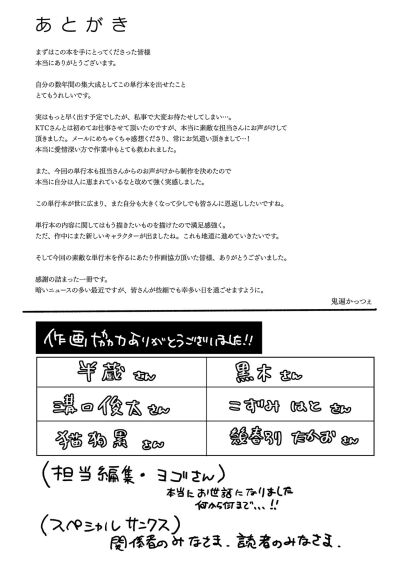 あとがき
まずはこの本を手にとってくださった皆様
本当にありがとうございます。
自分の数年間の集大成としてこの単行本を出せたこと
とてもうれしいです。
実はもっと早く出す予定でしたが、私事で大変お待たせしてしまい…。
KTCさんとは初めてお仕事させて頂いたのですが、本当に素敵な担当さんにお声がけして
頂きました。メールにめちゃくちゃ感想くださり、常にお気遣い頂きまして…！
本当に愛情深い方で作業中もとても救われました。
また、今回の単行本も担当さんからのお声がけから制作を決めたので
本当に自分は人に恵まれているなと改めて強く実感しました。
この単行本が世に広まり、また自分も大きくなって少しでも皆さんに恩返ししたいですね。
単行本の内容に関してはもう描きたいものを描けたので満足感強く。
ただ、作中にまた新しいキャラクターが出ましたね。これも地道に進めていきたいです。
そして今回の素敵な単行本を作るにあたり作画協力頂いた皆様、ありがとうございました。
感謝の詰まった一冊です。
暗いニュースの多い最近ですが、皆さんが些細でも幸多い日を過ごせますように。
鬼遍かっつぇ
作画協力ありがとうございました!!
半蔵さん
黒木さん
溝口俊太さん
こずみはとさん
猫狗黒さん
幾春別たかおさん
(担当編集・ヨゴさん)
本当にお世話になりました
何から何まで...!!
(スペシャルサンクス)
関係者のみなさま.読者のみなさま.